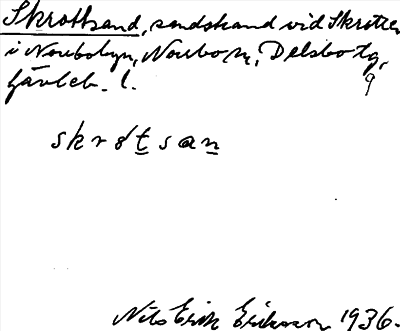 Skrottsand, sandstrand vid Skrotten
i Norrbobyn, Norrbo sn, Delsbo tg,
Gävleb. l. 9
skrøtsan
Nils Erik Eriksson 1936.